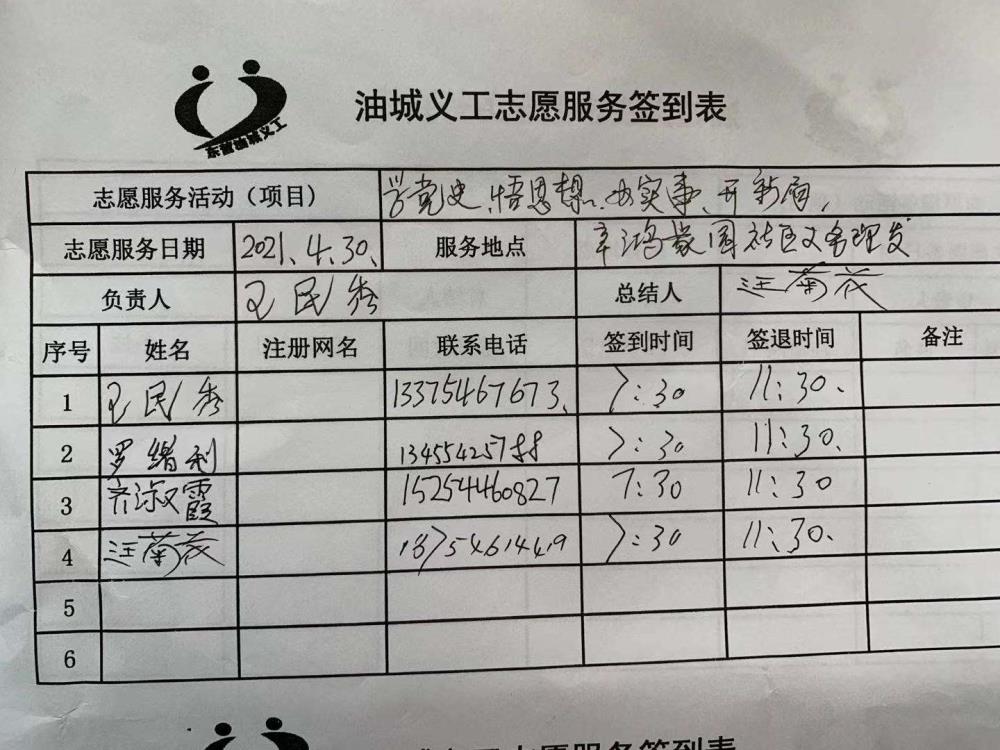 东营油城义工
油城义工志愿服务签到表
志愿服务活动（项目） 学党史、悟思想、办实事、开新局，
志愿服务日期 2021.4.30、 服务地点 辛鸿景园社区义务理发
负责人 王民秀 总结人 汪菊花
序号 姓名 注册网名 联系电话 签到时间 签退时间 备注
1 王民秀 13375467673、 7:30 11:30、
2 罗绪利 13455425788 7:30 11:30、
3 齐淑霞 15254460827 7:30 11:30
4 汪菊花 18754614419 7:30 11:30、
5
6
油城义工志愿服务签到表